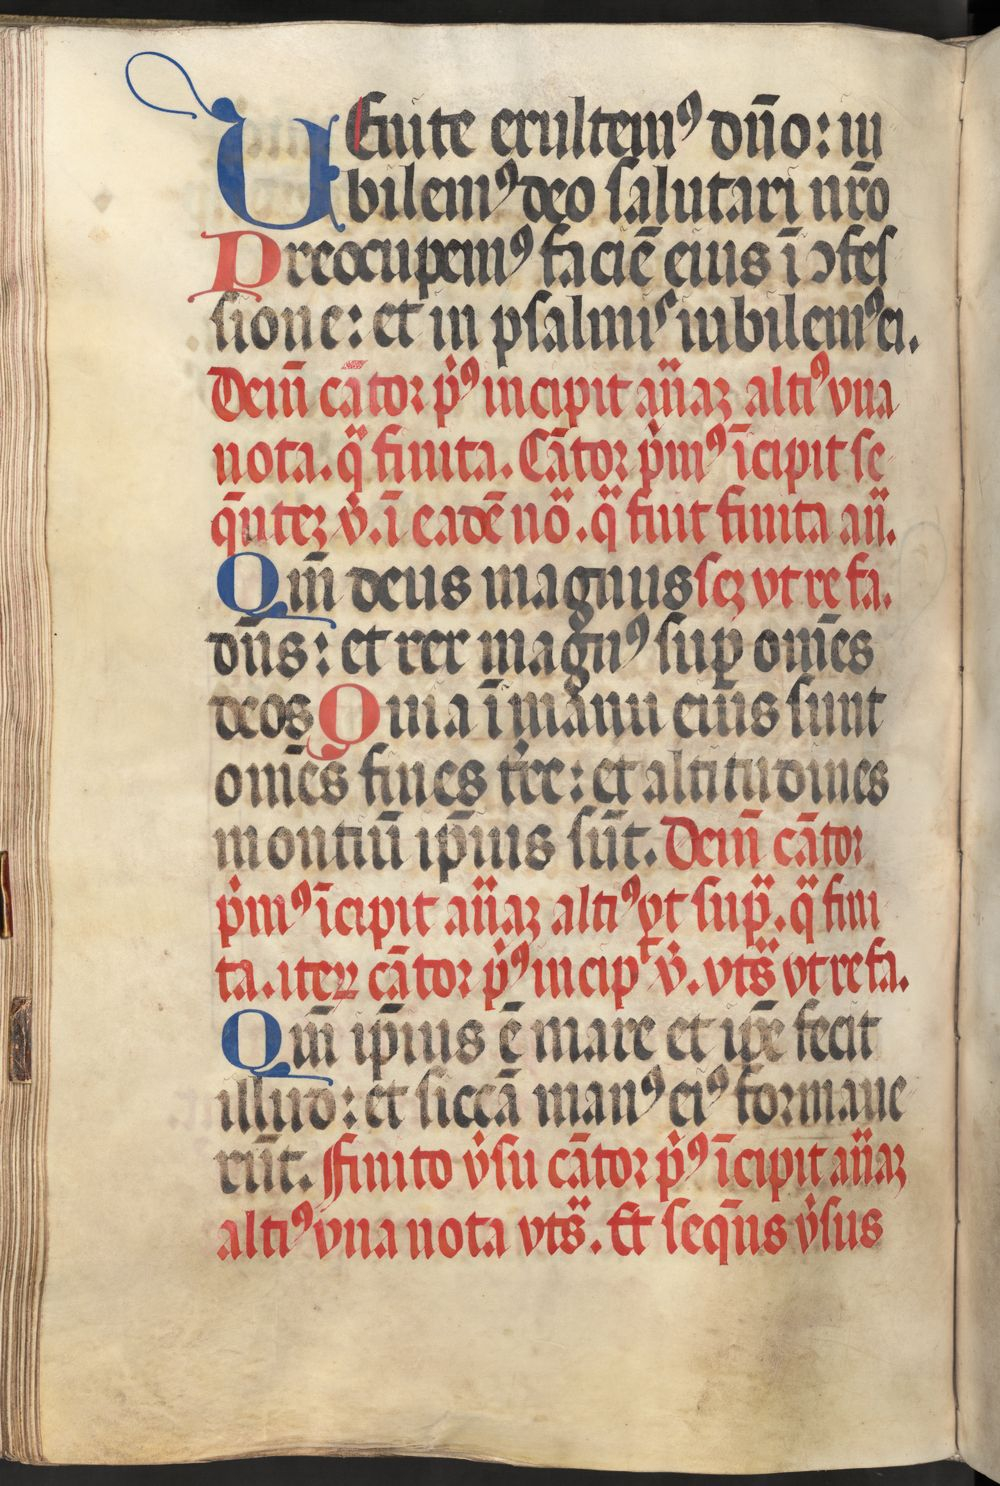 UEnite exultemꝰ dn̄o: iu
bilemꝰ deo salutari nr̄o
Preocupemꝰ faciē eius ī ↄfes
sione: et in psalmis iubilemꝰ ei.
Dein̄ cātor p̄ꝰ incipit an̄aꝫ altiꝰ vna
nota. q̄ finita. Cātor p̄mꝰ īcipit se
q̄nteꝫ v̾. ī eadē nō. q̄ fuit finita an̄.
Qm̄ deus magnus scꝫ vt re fa.
dn̄s: et rex magnꝰ suꝑ om̄es
deos Quia ī manu eius sunt
om̄es fines t̄re: et altitudines
montiū ip̄ius sūt. Dein̄ cātor
p̄mꝰ īcipit an̄aꝫ altiꝰ vt sup̄. q̄ fini
ta. iteꝝ cātor p̄ꝰ incipᵗ v̾. vts̄ vt re fa.
Qm̄ ip̄ius ē mare et ip̄e fecit
illud: et siccā manꝰ eiꝰ formaue
rūt. Finito v̾su cātor p̄ꝰ īcipit an̄aꝫ
altiꝰ vna nota vts̄. Et seqn̄s v̾sus